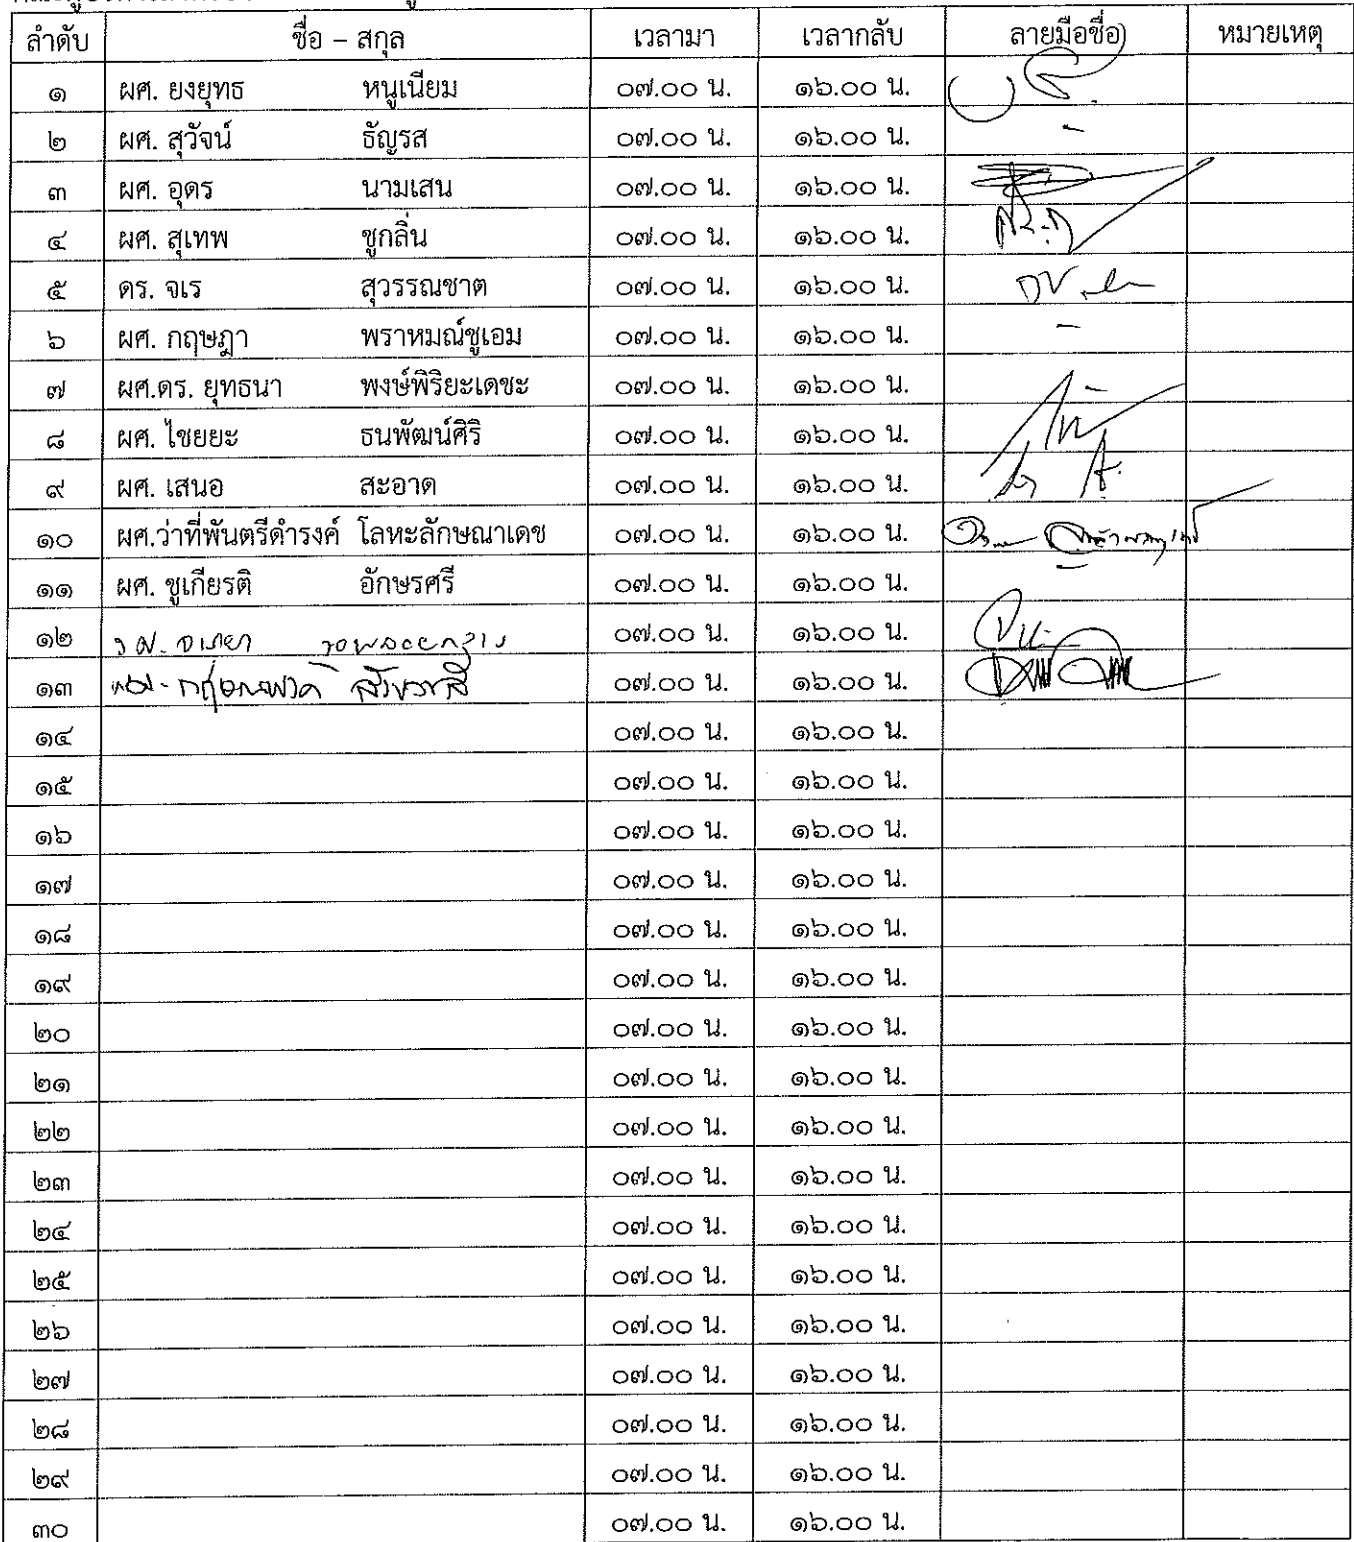 ลำดับ ชื่อ – สกุล เวลามา เวลากลับ ลายมือชื่อ หมายเหตุ
๑ ผศ. ยงยุทธ หนูเนียม ๐๗.๐๐ น. ๑๖.๐๐ น.
๒ ผศ. สุวัจน์ ธัญรส ๐๗.๐๐ น. ๑๖.๐๐ น. -
๓ ผศ. อุดร นามเสน ๐๗.๐๐ น. ๑๖.๐๐ น.
๔ ผศ. สุเทพ ชูกลิ่น ๐๗.๐๐ น. ๑๖.๐๐ น.
๕ ดร. จเร สุวรรณชาต ๐๗.๐๐ น. ๑๖.๐๐ น.
๖ ผศ. กฤษฎา พราหมณ์ชูเอม ๐๗.๐๐ น. ๑๖.๐๐ น. -
๗ ผศ.ดร. ยุทธนา พงษ์พิริยะเดชะ ๐๗.๐๐ น. ๑๖.๐๐ น.
๘ ผศ. ไชยยะ ธนพัฒน์ศิริ ๐๗.๐๐ น. ๑๖.๐๐ น.
๙ ผศ. เสนอ สะอาด ๐๗.๐๐ น. ๑๖.๐๐ น.
๑๐ ผศ.ว่าที่พันตรีดำรงค์ โลหะลักษณาเดช ๐๗.๐๐ น. ๑๖.๐๐ น.
๑๑ ผศ. ชูเกียรติ อักษรศรี ๐๗.๐๐ น. ๑๖.๐๐ น.
๑๒ ๐๗.๐๐ น. ๑๖.๐๐ น.
๑๓ ๐๗.๐๐ น. ๑๖.๐๐ น.
๑๔ ๐๗.๐๐ น. ๑๖.๐๐ น.
๑๕ ๐๗.๐๐ น. ๑๖.๐๐ น.
๑๖ ๐๗.๐๐ น. ๑๖.๐๐ น.
๑๗ ๐๗.๐๐ น. ๑๖.๐๐ น.
๑๘ ๐๗.๐๐ น. ๑๖.๐๐ น.
๑๙ ๐๗.๐๐ น. ๑๖.๐๐ น.
๒๐ ๐๗.๐๐ น. ๑๖.๐๐ น.
๒๑ ๐๗.๐๐ น. ๑๖.๐๐ น.
๒๒ ๐๗.๐๐ น. ๑๖.๐๐ น.
๒๓ ๐๗.๐๐ น. ๑๖.๐๐ น.
๒๔ ๐๗.๐๐ น. ๑๖.๐๐ น.
๒๕ ๐๗.๐๐ น. ๑๖.๐๐ น.
๒๖ ๐๗.๐๐ น. ๑๖.๐๐ น.
๒๗ ๐๗.๐๐ น. ๑๖.๐๐ น.
๒๘ ๐๗.๐๐ น. ๑๖.๐๐ น.
๒๙ ๐๗.๐๐ น. ๑๖.๐๐ น.
๓๐ ๐๗.๐๐ น. ๑๖.๐๐ น.